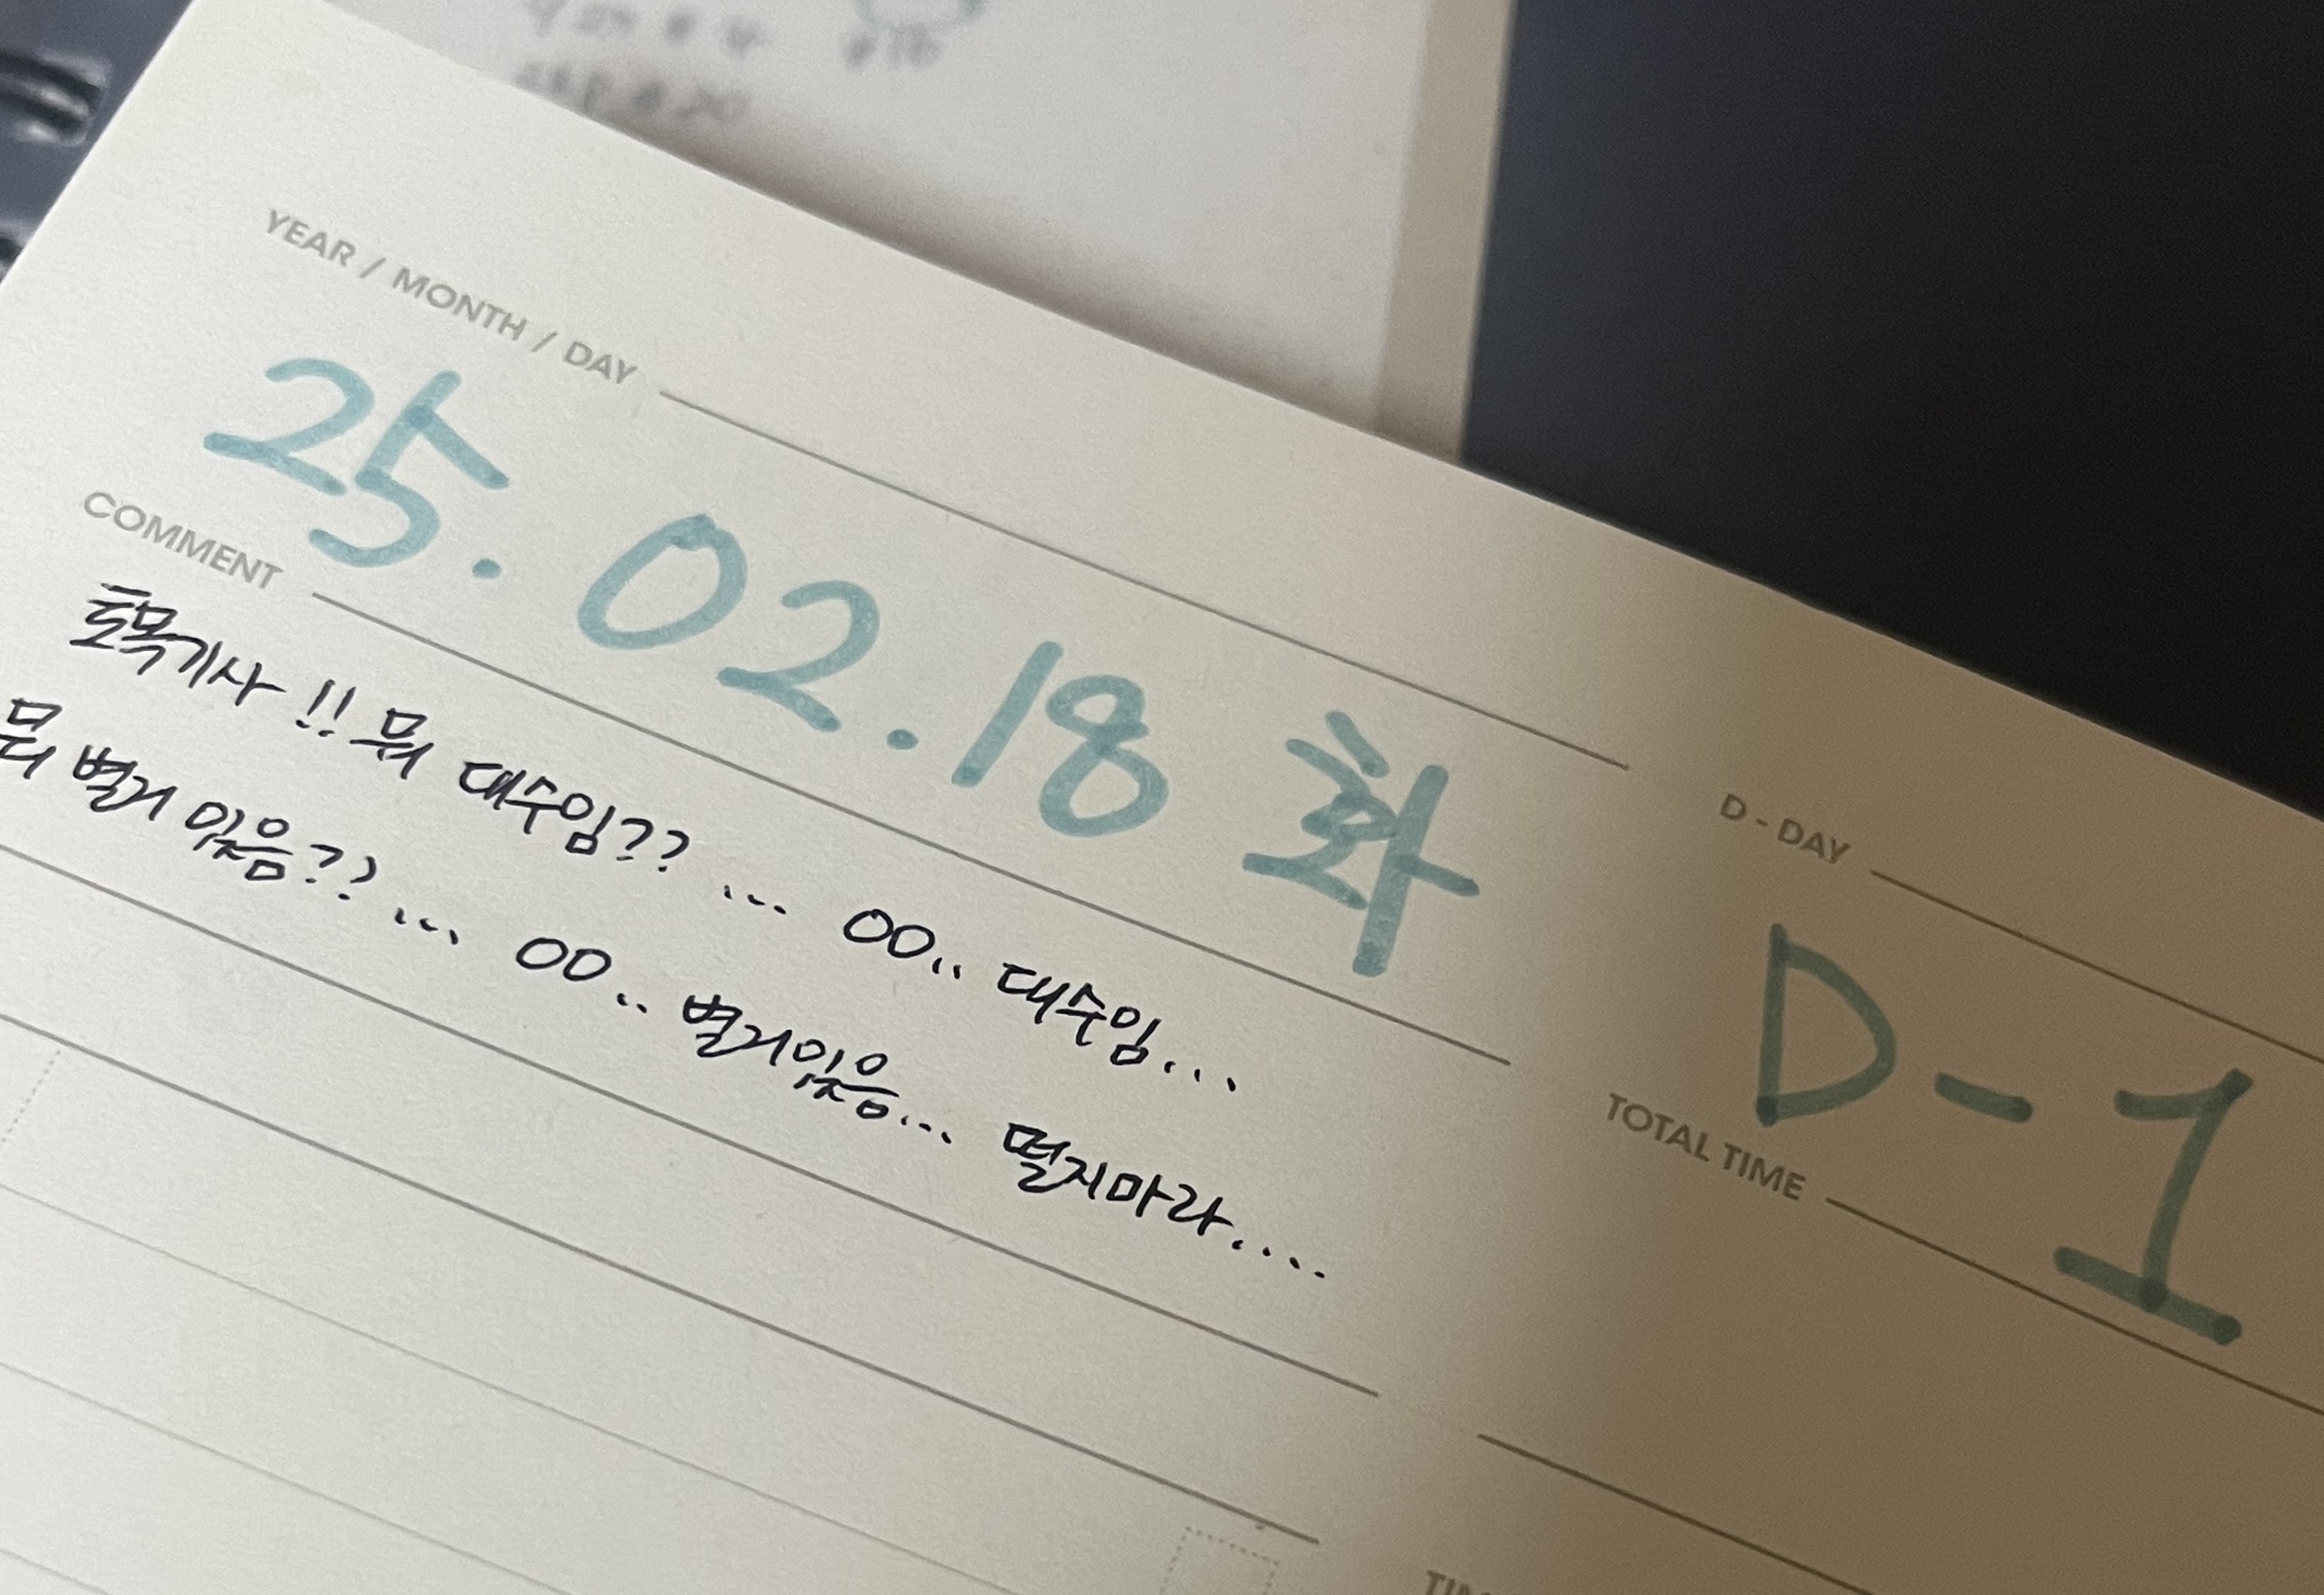 YEAR / MONTH / DAY
25. 02. 18 화
D - DAY
D-1
COMMENT
토목기사!! 뭐 대수임?? ... ㅇㅇ.. 대수임...
뭐 별거 있음?? ... ㅇㅇ.. 별거있음... 떨지마라....
TOTAL TIME